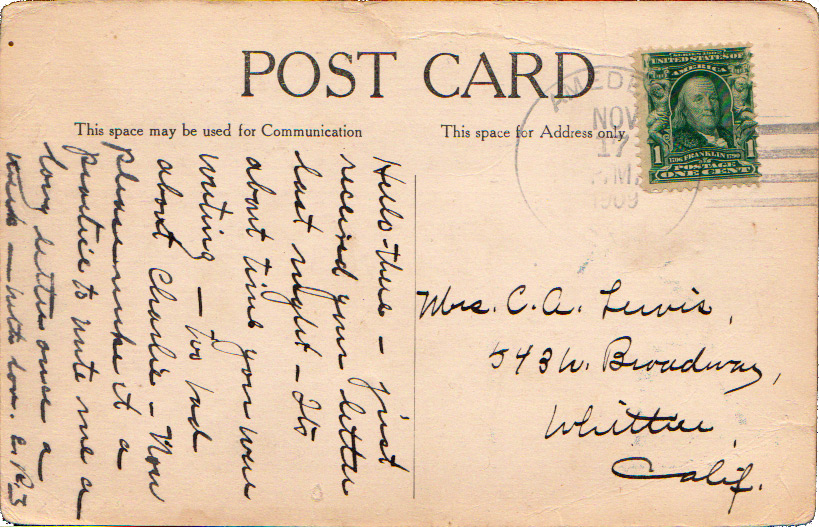 POST CARD
This space may be used for Communication
This space for Address only
NOV
17
M.
1909
SERIES 1902
UNITED STATES OF
AMERICA
1 1
1706 FRANKLIN 1790
POSTAGE
ONE CENT
Hello there – just
received your letter
last night – Its
about time you were
writing – too bad
about Charlie – Now
please make it a
practice to write me a
long letter once a
week – with love.
Mrs. C. A. Lewis,
543 W. Broadway,
Whittier,
Calif.